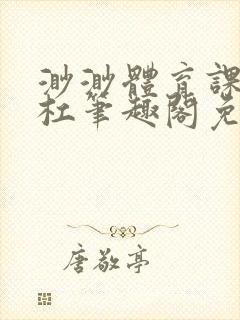 渺渺體育課
杜笔趣閣免
唐敬亭